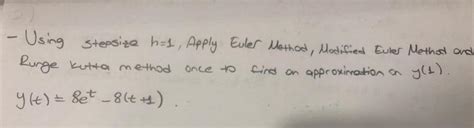 - Using stepsize h=1, Apply Euler Method, Modified Euler Method and
Runge kutta method once to find an approximation on y(1).
y(t) = 8e^t - 8(t+1).